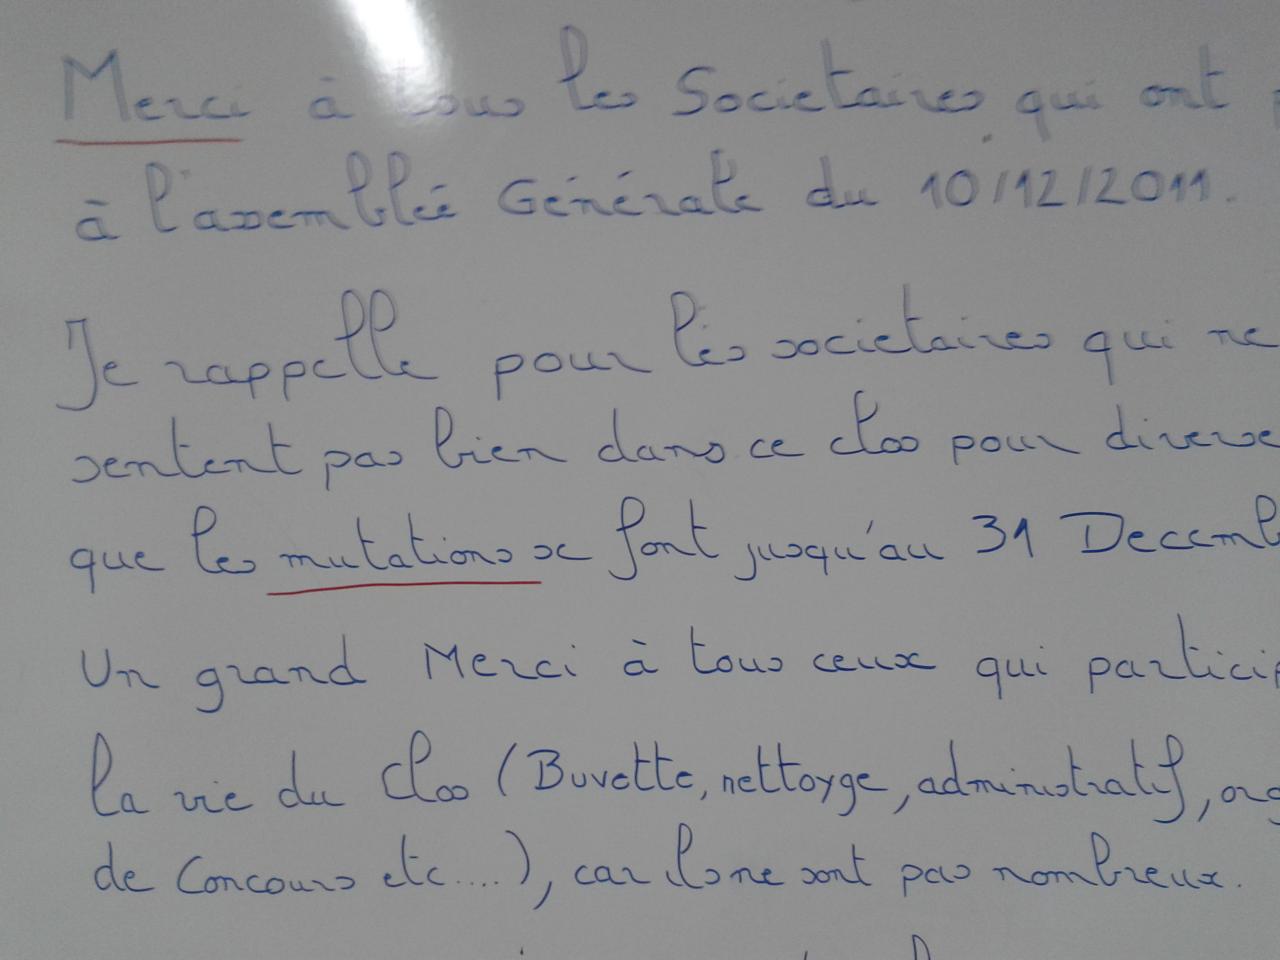 Merci à tous les Societaires qui ont
à l'assemblée Générale du 10/12/2011.
Je rappelle pour les societaires qui ne
sentent pas bien dans ce clos pour diverse
que les mutations se font jusqu'au 31 Decemb
Un grand Merci à tous ceux qui particip
la vie du Clos (Buvette, nettoyge, administratif, org
de Concours etc....), car ils ne sont pas nombreux.